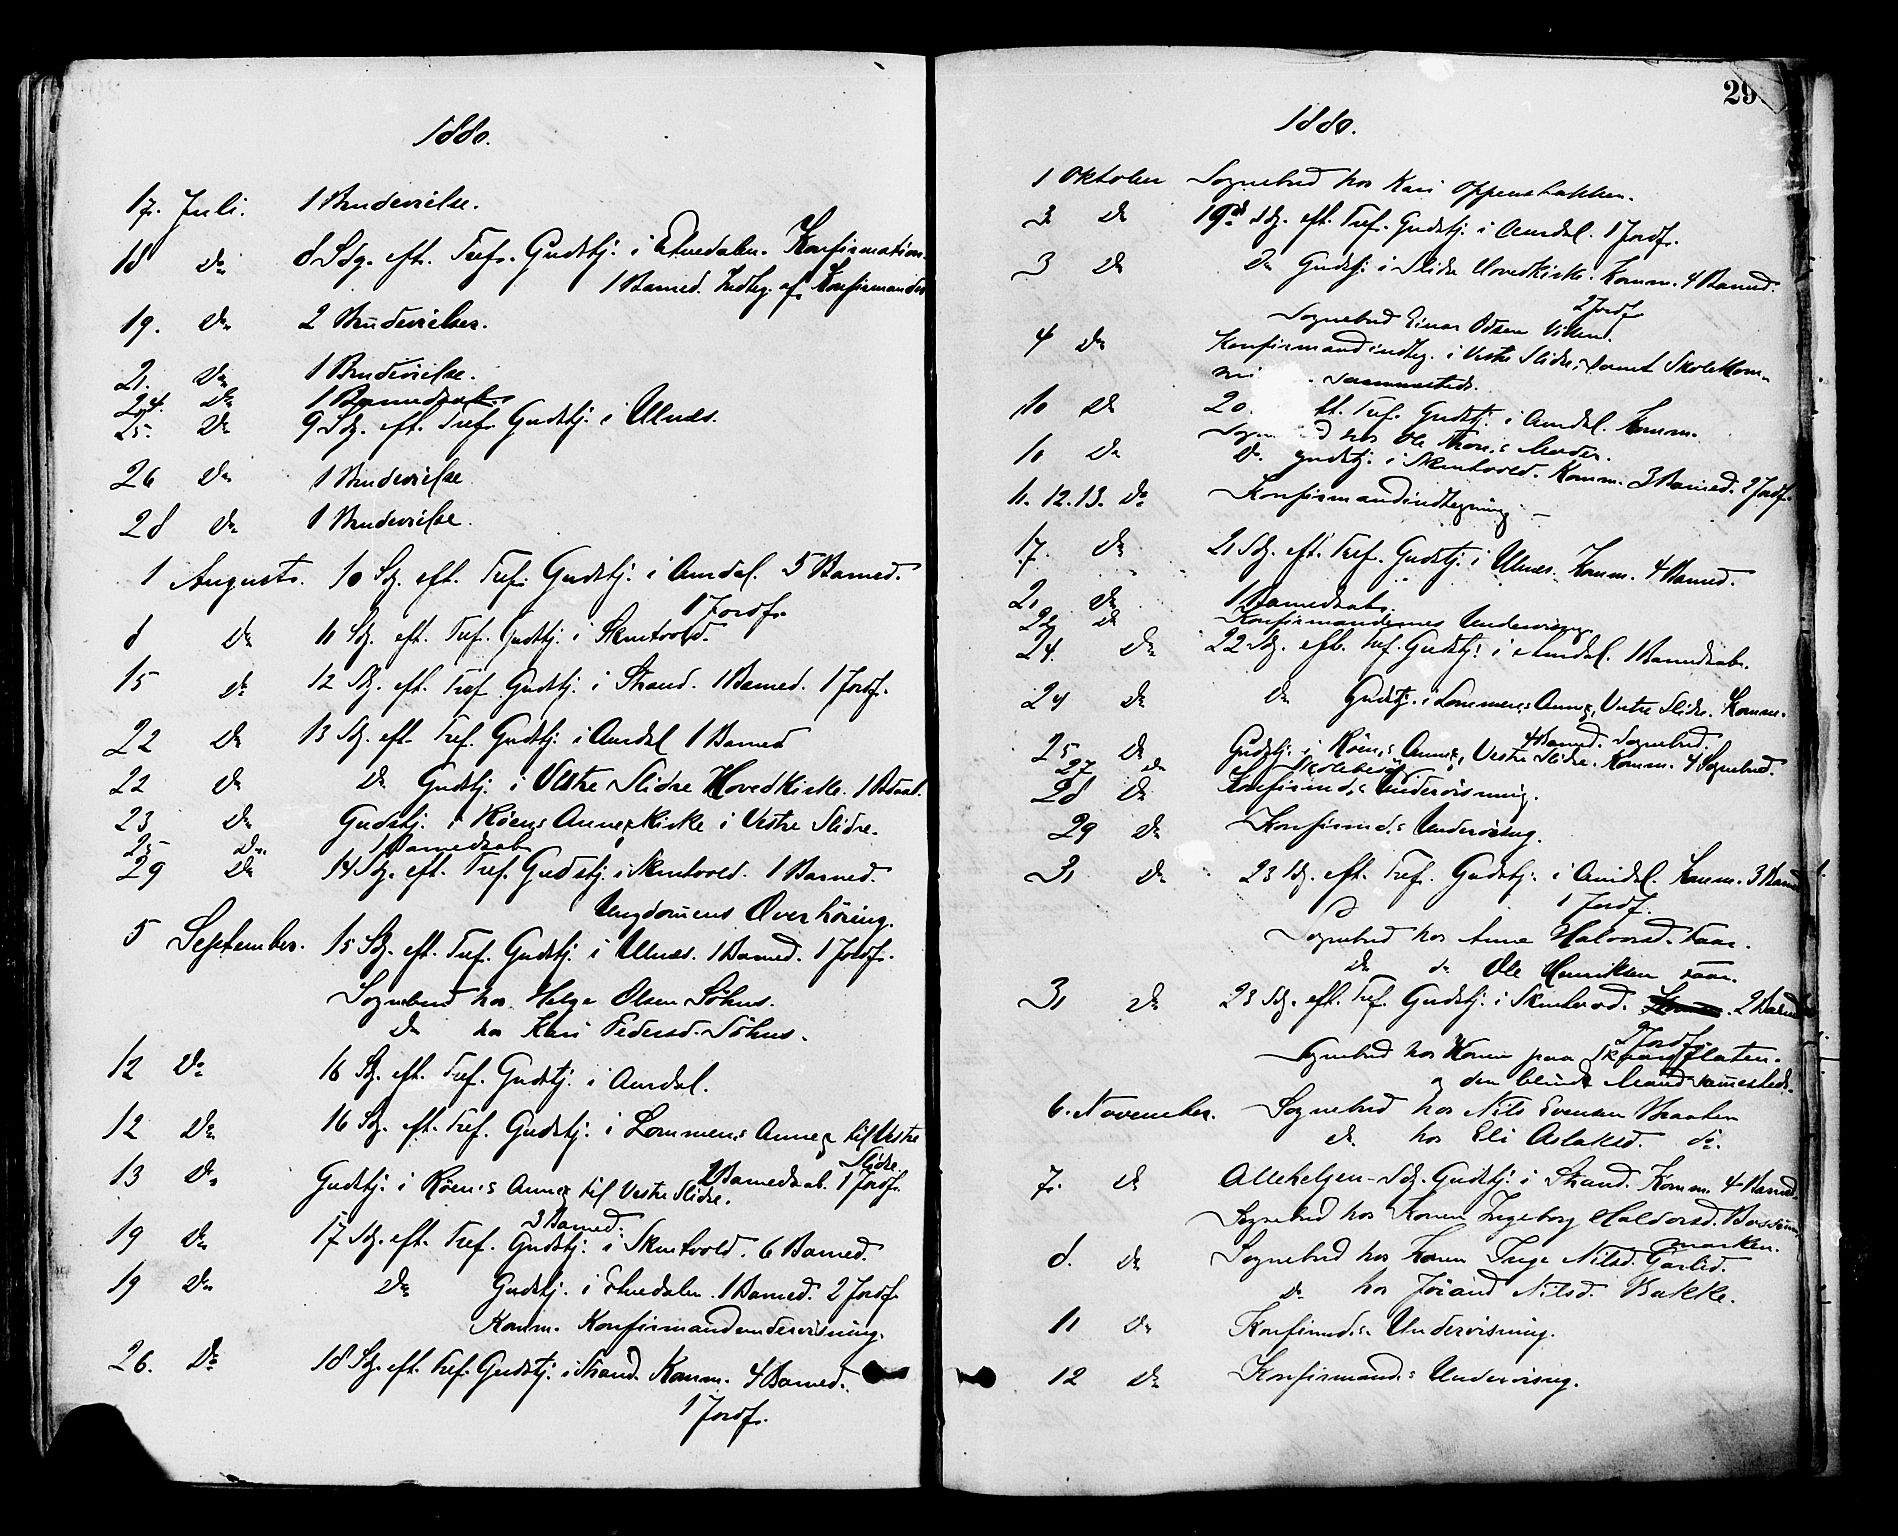 1880.
17. Juli. 1 Brudevielse.
18 Do 8 Sdg. eft. Tref. Gudstj. i Etnedalen. Konfirmation.
1 Barned. Indteg. af Konfirmander
19. Do 2 Brudevielser.
21. Do 1 Brudevielse.
24. Do 1 Barnedaab.
25. Do 9 Sdg. eft. Tref. Gudstj. i Ulnæs.
26 Do 1 Brudevielse
28 Do 1 Brudevielse.
1 August. 10 Sdg. eft. Tref. Gudstj. i Aurdal. 5 Barned.
1 Jordf.
8 Do 11 Sdg. eft. Tref. Gudstj. i Skrutvold.
15 Do 12 Sdg. eft. Tref. Gudstj. i Strand. 1 Barned. 1 Jordf.
22 Do 13 Sdg. eft. Tref. Gudstj. i Aurdal 1 Barned
22 Do Do Gudstj. i Vestre Slidre Hovedkirke. 1 Bdaab.
23 Do Gudstj. i Røens Annexkirke i Vestre Slidre.
25 Do 1 Barnedaab
29 Do 14 Sdg. eft. Tref. Gudstj. i Skrutvold. 1 Barned.
Ungdomens Overhöring.
5 September. 15 Sdg. eft. Tref. Gudstj. i Ulnæs. 1 Barned. 1 Jordf.
Sognebud hos Helge Olsen Söhus.
Do hos Kari Pedersd. Söhus.
12 Do 16 Sdg. eft. Tref. Gudstj. i Aurdal.
12 Do 16 Sdg. eft. Tref. Gudstj. i Lommens Annex til Vestre
Slidre.
13 Do Gudstj. i Røens Annex til Vestre Slidre. 2 Barnedaab. 1 Jordf.
3 Barned.
19 Do 17 Sdg. eft. Tref. Gudstj. i Skrutvold. 6 Barned.
19 Do Do Gudstj. i Etnedalen. 1 Barned. 2 Jordf.
Komm. Konfirmandundervisning.
26. Do 18 Sdg. eft. Tref. Gudstj. i Strand. Komm. 4 Barned.
1 Jordf.
29
1880.
1 Oktober Sognebud hos Kari
3 Do 19de Sdg. eft. Tref. Gudstj. i Aurdal. 1 Jordf.
3 Do Do Gudstj. i Slidre Hovedkirke. Komm. 4 Barned.
2 Jordf.
Sognebud Einar Odsen
4 Do Konfirmandindteg. i Vestre Slidre, samt Skolekom-
sammesteds.
10 Do 20. eft. Tref. Gudstj. i Aurdal. Komm.
hos Ole Moder.
10 Do Do Gudstj. i Skrutvold. Komm. 3 Barned. 2 Jordf.
11. 12. 13. Do Konfirmandindtegning
17. Do 21 Sdg. eft. Tref. Gudstj. i Ulnæs. Komm. 4 Barned.
21 Do 1 Barnedaab.
Do Konfirmandernes Undervisng.
24. Do 22 Sdg. eft. Tref. Gudstj. i Aurdal. 1 Barnedaab.
24 Do Do Gudstj. i Lommens Annex, Vestre Slidre. Komm.
4 Barned. Sognebud.
25 Do Gudstj. i Røens Annex, Vestre Slidre. Komm. 4 Sognebud.
27 Do Skolebesög
28 Do Konfirmd.s Undervisning.
29 Do Konfirmd.s Undervisng.
31 Do 23 Sdg. eft. Tref. Gudstj. i Aurdal. Komm. 3 Barned.
1 Jordf.
Sognebud hos Anne Halvorsd.
Do do Ole Henriksen
31 Do 23 Sdg. eft. Tref. Gudstj. i Skrutvold. 2 Barned.
2 Jordf.
Sognebud hos Konen paa
og den blinde Mand sammesteds.
6. November. Sognebud hos Nils Evensen Braaten
Do hos Eli Aslaksd. do.
7. Do Allehelgen-Sdg. Gudstj. i Strand. Komm. 4 Barned.
Sognebud hos Konen Ingeborg Haldorsd.
marken.
8. Do Sognebud hos Konen Inge Nilsd. Garlid.
Do hos Jörand Nilsd. Bakke.
11 Do Konfirmd.s Undervisning.
12 Do Konfirmand.s Undervisng.